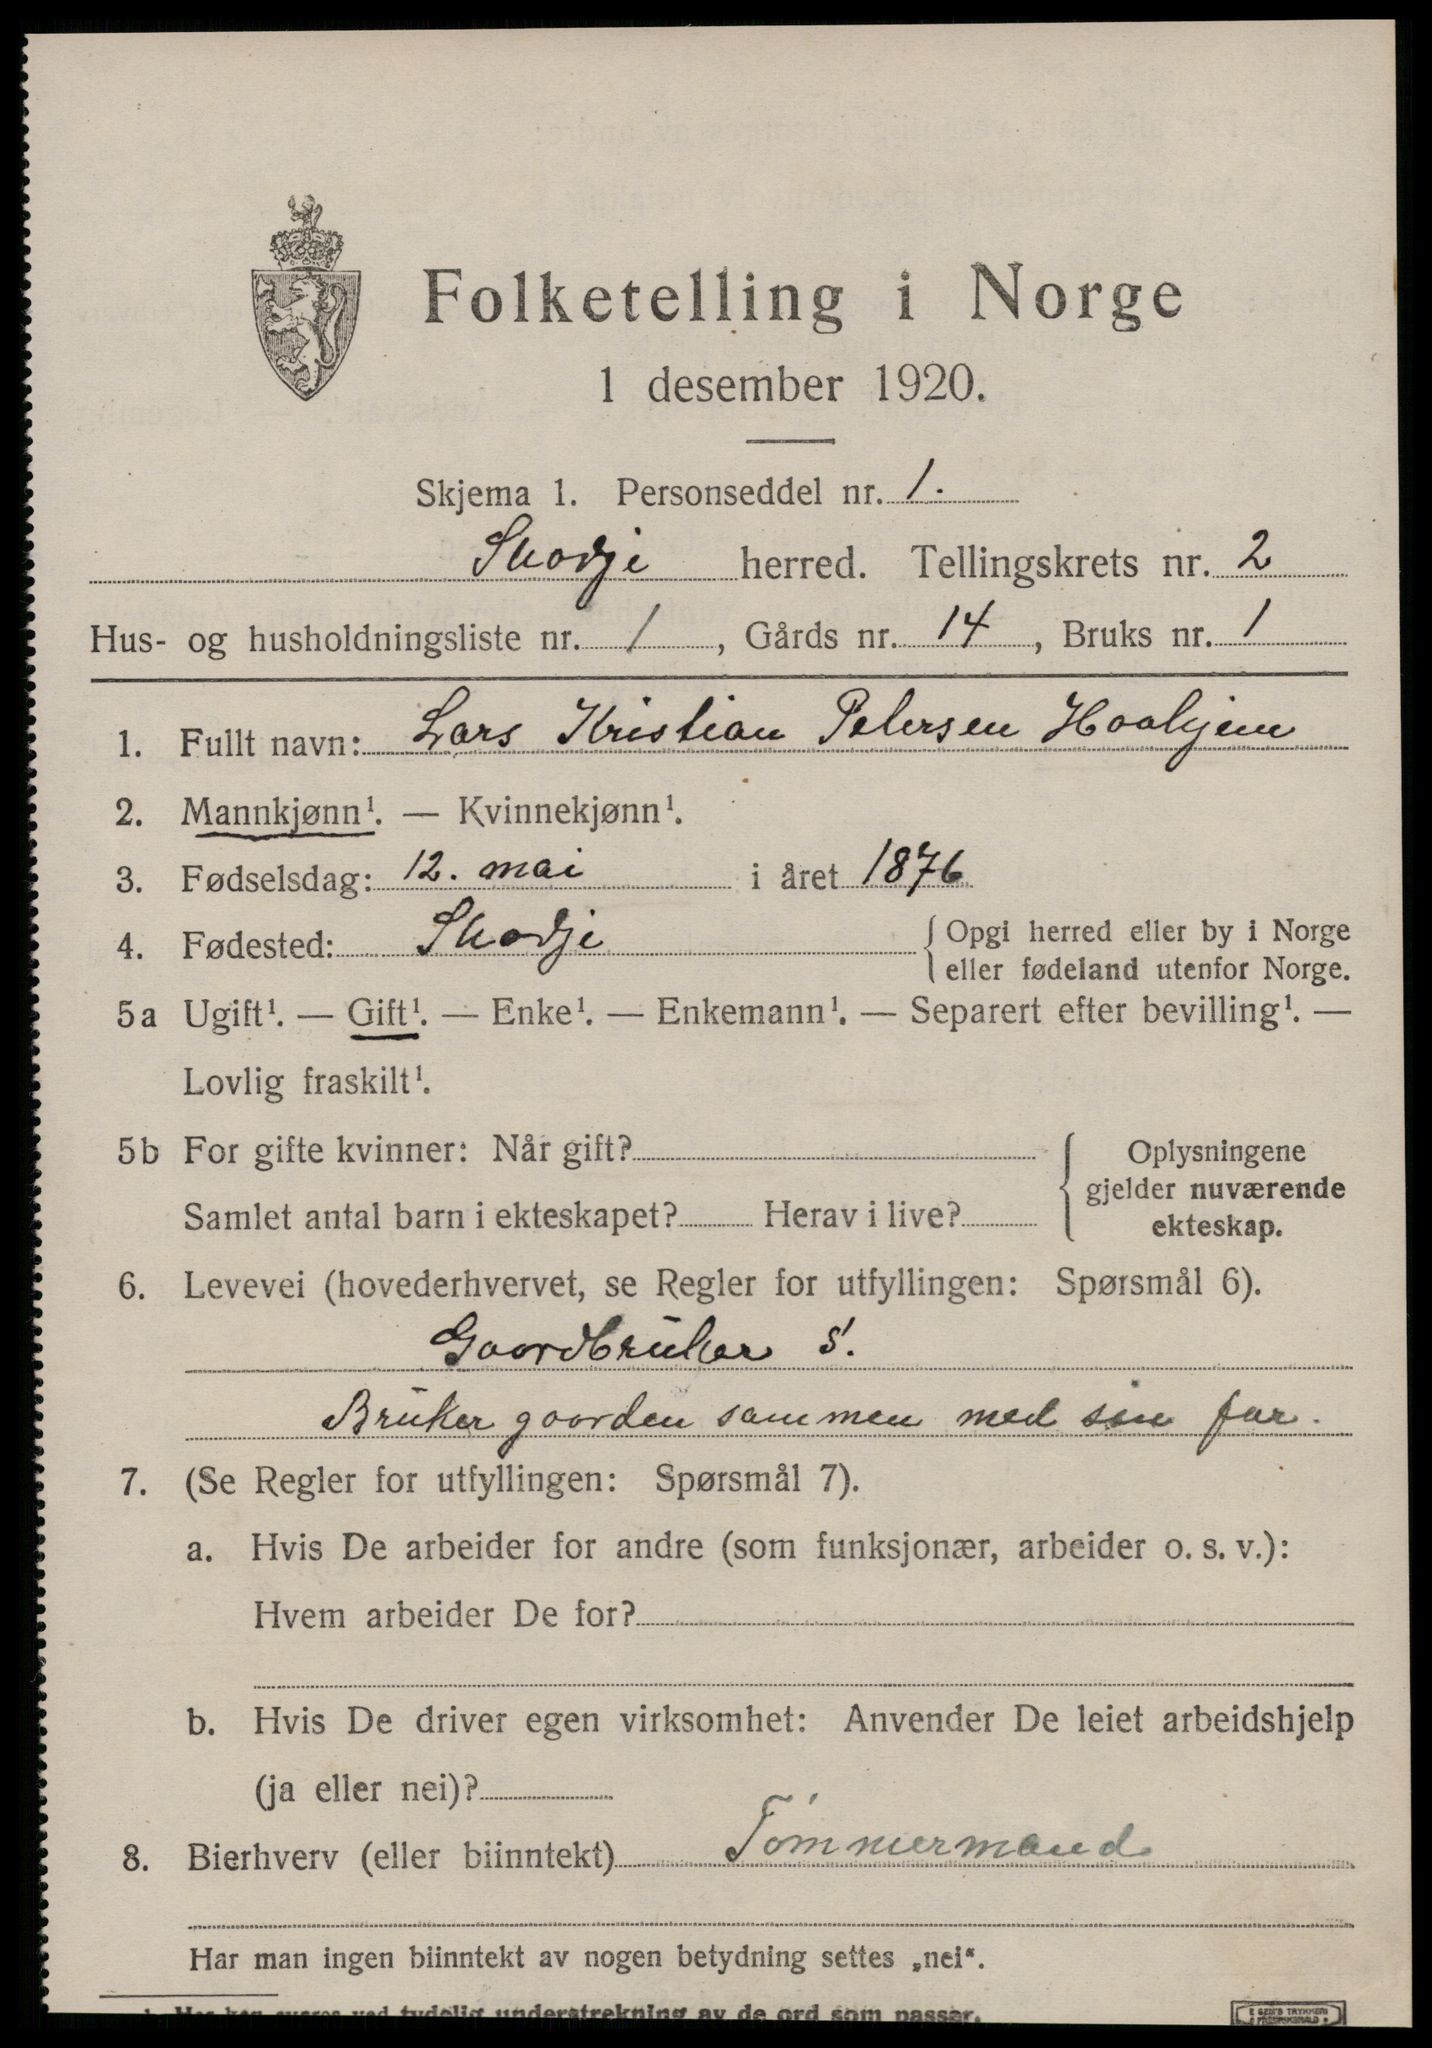 Folketelling i Norge
1 desember 1920.
Skjema 1. Personseddel nr. 1.
Skodje herred. Tellingskrets nr. 2
Hus- og husholdningsliste nr. 1, Gårds nr. 14, Bruks nr. 1
1. Fullt navn: Lars Kristian Petersen Haahjem
2. Mannkjønn¹. — Kvinnekjønn¹.
3. Fødselsdag: 12. mai i året 1876
4. Fødested: Skodje { Opgi herred eller by i Norge
eller fødeland utenfor Norge.
5a Ugift¹. — Gift¹. — Enke¹. — Enkemann¹. — Separert efter bevilling¹. —
Lovlig fraskilt¹.
5b For gifte kvinner: Når gift?
Samlet antal barn i ekteskapet? Herav i live?
{ Oplysningene
gjelder nuværende
ekteskap.
6. Levevei (hovederhvervet, se Regler for utfyllingen: Spørsmål 6).
Gaardbruker S.
Bruker gaarden sammen med sin far.
7. (Se Regler for utfyllingen: Spørsmål 7).
a. Hvis De arbeider for andre (som funksjonær, arbeider o. s. v.):
Hvem arbeider De for?
b. Hvis De driver egen virksomhet: Anvender De leiet arbeidshjelp
(ja eller nei)?
8. Bierhverv (eller biinntekt) Tømmermand
Har man ingen biinntekt av nogen betydning settes „nei“.
¹ Her kan svares ved tydelig understrekning av de ord som passer.